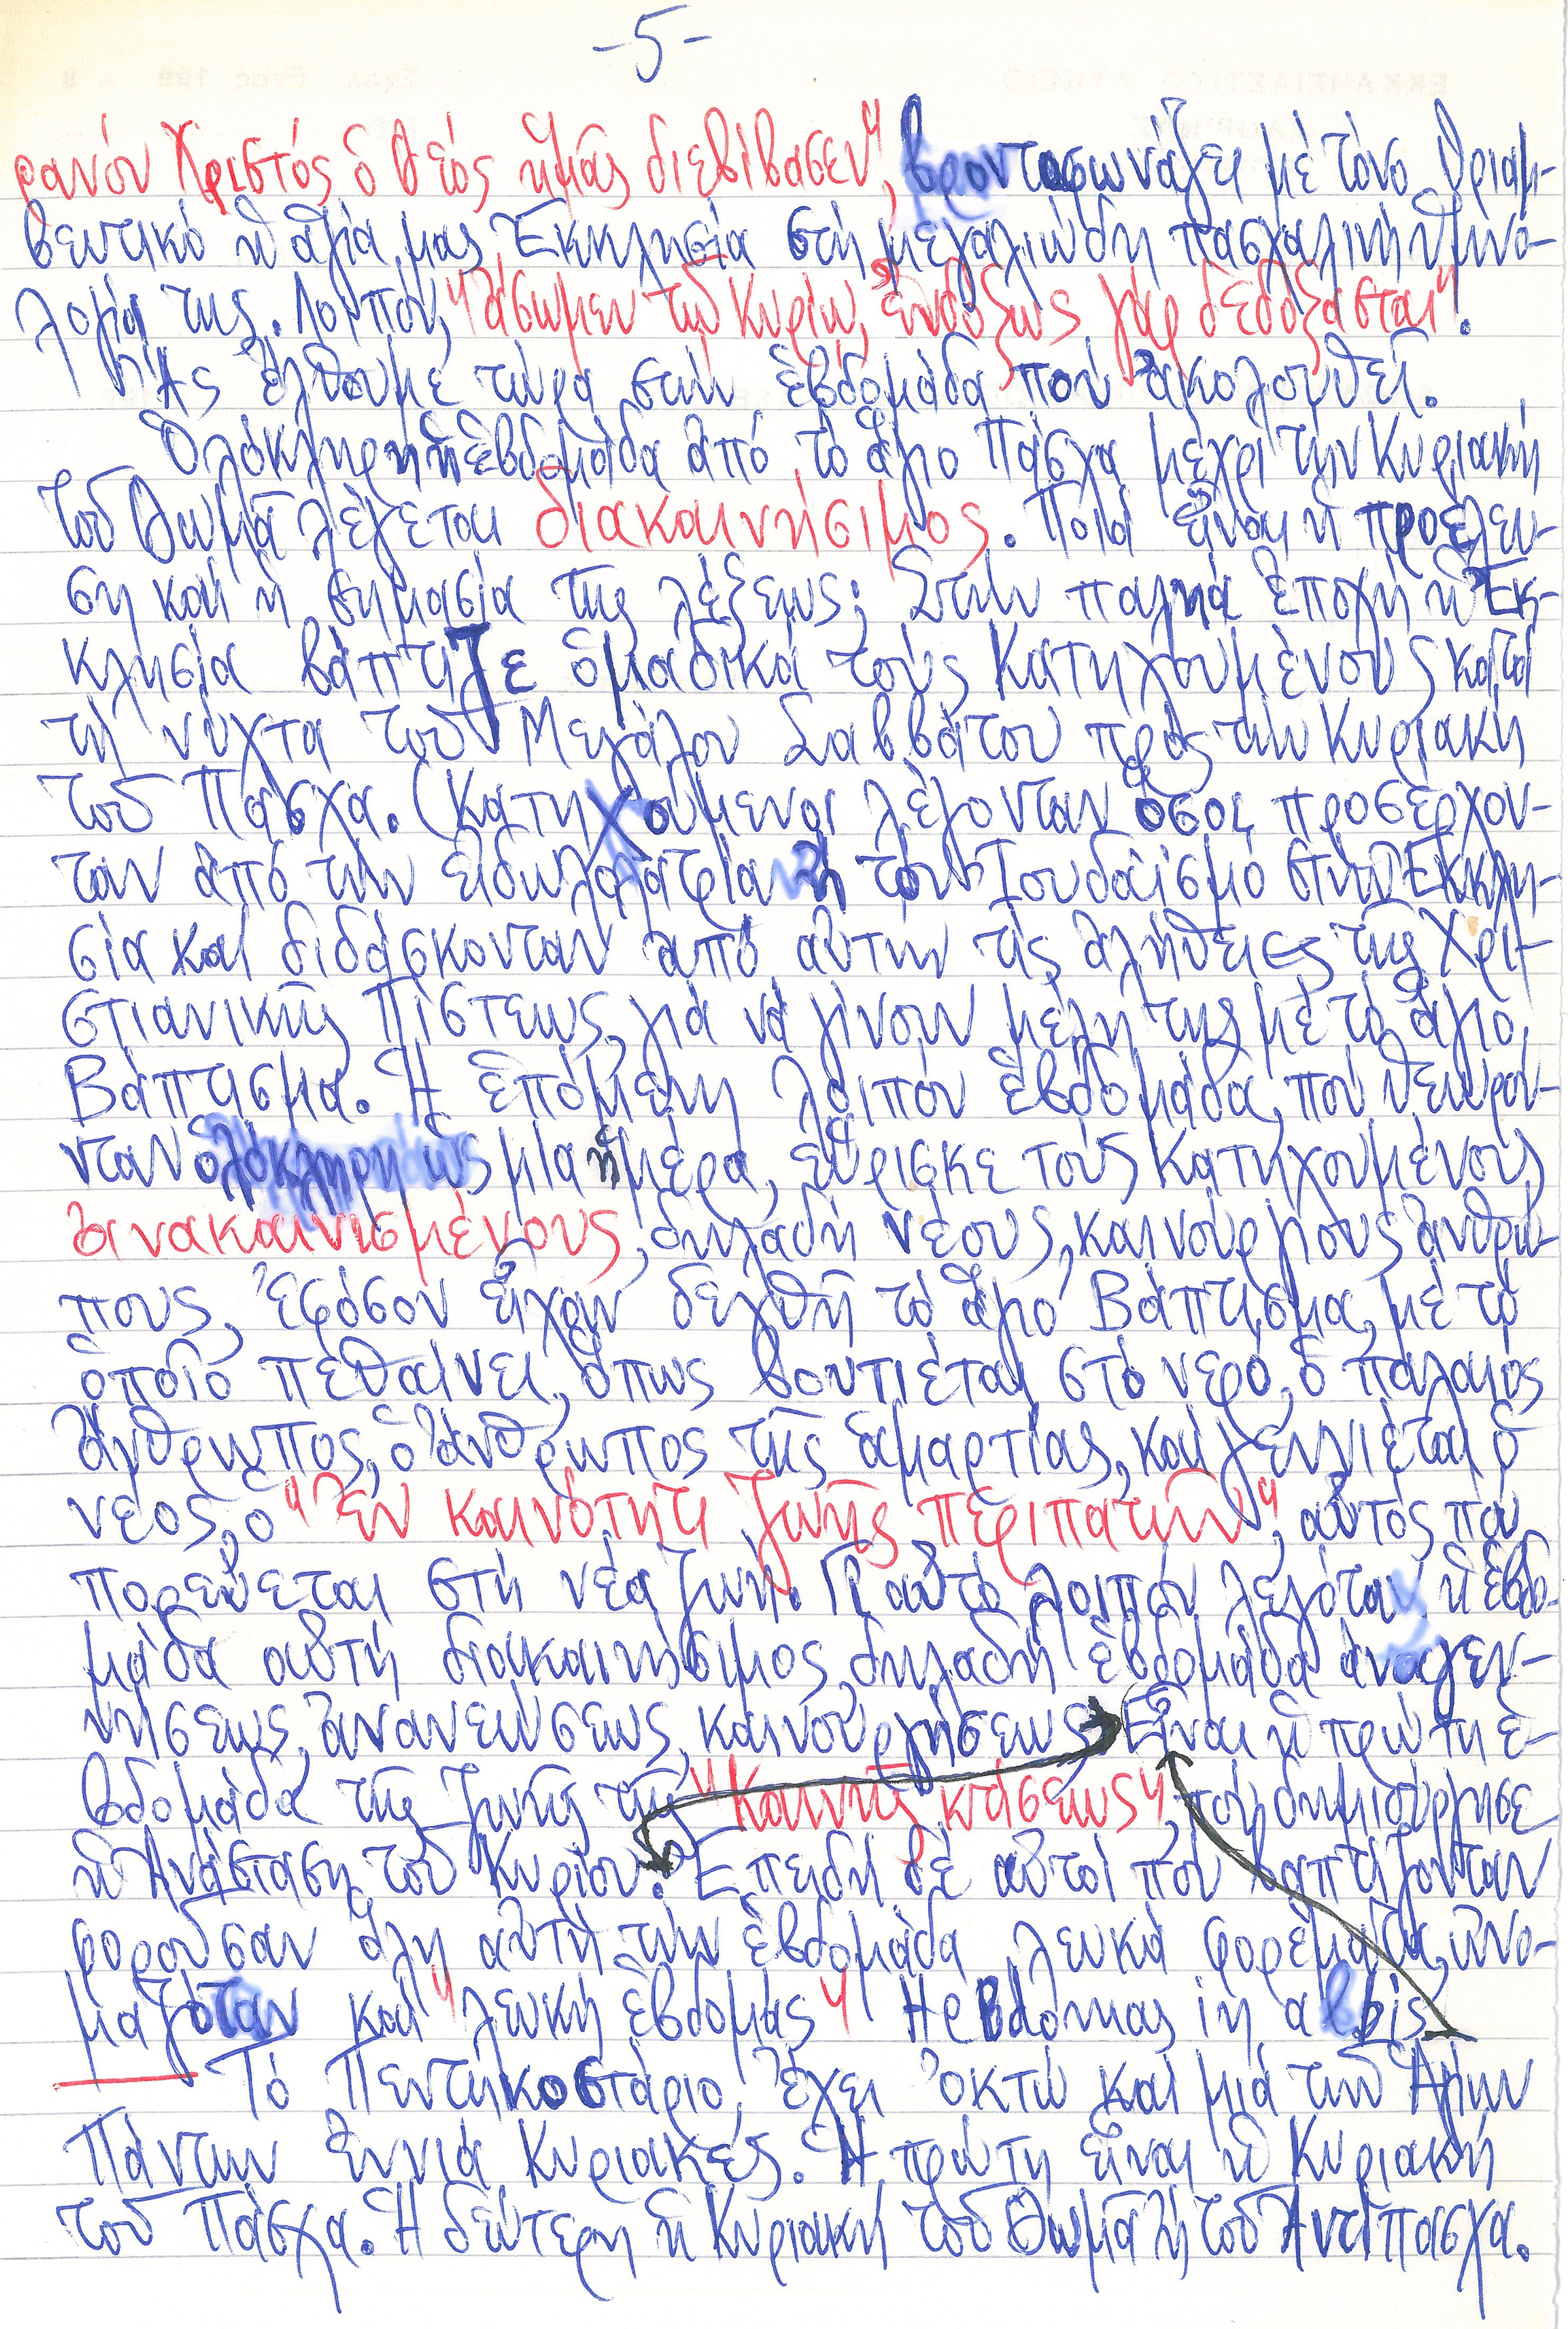 -5-
ρανόν Χριστός ὁ Θεός ἡμᾶς διεβίβασεν", βροντοφωνάζει μέ τόνο θριαμ-
βευτικό ἡ ἁγία μας Ἐκκλησία στή μεγαλιώδη πασχαλινή ὑμνο-
λογία της. Λοιπόν, "ἄσωμεν τῷ Κυρίῳ, ἐνδόξως γάρ δεδόξασται".
Ἄς ἔλθουμε τώρα στήν ἑβδομάδα πού ἀκολουθεῖ.
Ὁλόκληρη ἡ ἑβδομάδα ἀπό τό ἅγιο Πάσχα μέχρι τήν Κυριακή
τοῦ Θωμᾶ λέγεται διακαινήσιμος. Ποιά εἶναι ἡ προέλευ-
ση καί ἡ σημασία τῆς λέξεως; Στήν παληά ἐποχή ἡ Ἐκ-
κλησία βάπτιζε ὁμαδικά τούς Κατηχουμένους κατά
τή νύχτα τοῦ Μεγάλου Σαββάτου πρός τήν Κυριακή
τοῦ Πάσχα. (Κατηχούμενοι λέγονταν ὅσοι προσέρχον-
ταν ἀπό τήν εἰδωλολατρία ἤ τόν Ἰουδαϊσμό στήν Ἐκκλη-
σία καί διδάσκονταν ἀπό αὐτήν τίς ἀλήθειες τῆς Χρι-
στιανικῆς Πίστεως, γιά νά γίνουν μέλη της μέ τό ἅγιο
Βάπτισμα. Ἡ ἑπόμενη λοιπόν ἑβδομάδα, πού θεωρού-
νταν ὁλόκληρη ὡς μία ἡμέρα, εὕρισκε τούς Κατηχουμένους
ἀνακαινισμένους, δηλαδή νέους, καινούργιους ἀνθρώ-
πους, ἐφόσον εἶχαν δεχθῆ τό ἅγιο Βάπτισμα, μέ τό
ὁποῖο πεθαίνει, ὅπως βουτιέται στό νερό, ὁ παλαιός
ἄνθρωπος, ὁ ἄνθρωπος τῆς ἁμαρτίας, καί γεννιέται ὁ
νέος, ὁ "ἐν καινότητι ζωῆς περιπατῶν", αὐτός πού
πορεύεται στή νέα ζωή. Γι' αὐτό λοιπόν λεγόταν ἡ ἑβδο-
μάδα αὐτή διακαινήσιμος, δηλαδή ἑβδομάδα ἀναγεν-
νήσεως, ἀνανεώσεως, καινουργήσεως. Εἶναι ἡ πρώτη ἑ-
βδομάδα τῆς ζωῆς τῆς "Καινῆς κτίσεως", πού δημιούργησε
ἡ Ἀνάσταση τοῦ Κυρίου. Ἐπειδή δέ αὐτοί πού βαπτίζονταν
φοροῦσαν ὅλη αὐτή τήν ἑβδομάδα λευκά φορέματα, ὠνο-
μαζόταν καί "λευκή ἑβδομάς" Hebdomas in albis.
Τό Πεντηκοστάριο ἔχει ὀκτώ καί μιά τῶν Ἁγίων
Πάντων ἐννιά Κυριακές. Ἡ πρώτη εἶναι ἡ Κυριακή
τοῦ Πάσχα. Ἡ δεύτερη ἡ Κυριακή τοῦ Θωμᾶ ἤ τοῦ Ἀντίπασχα.